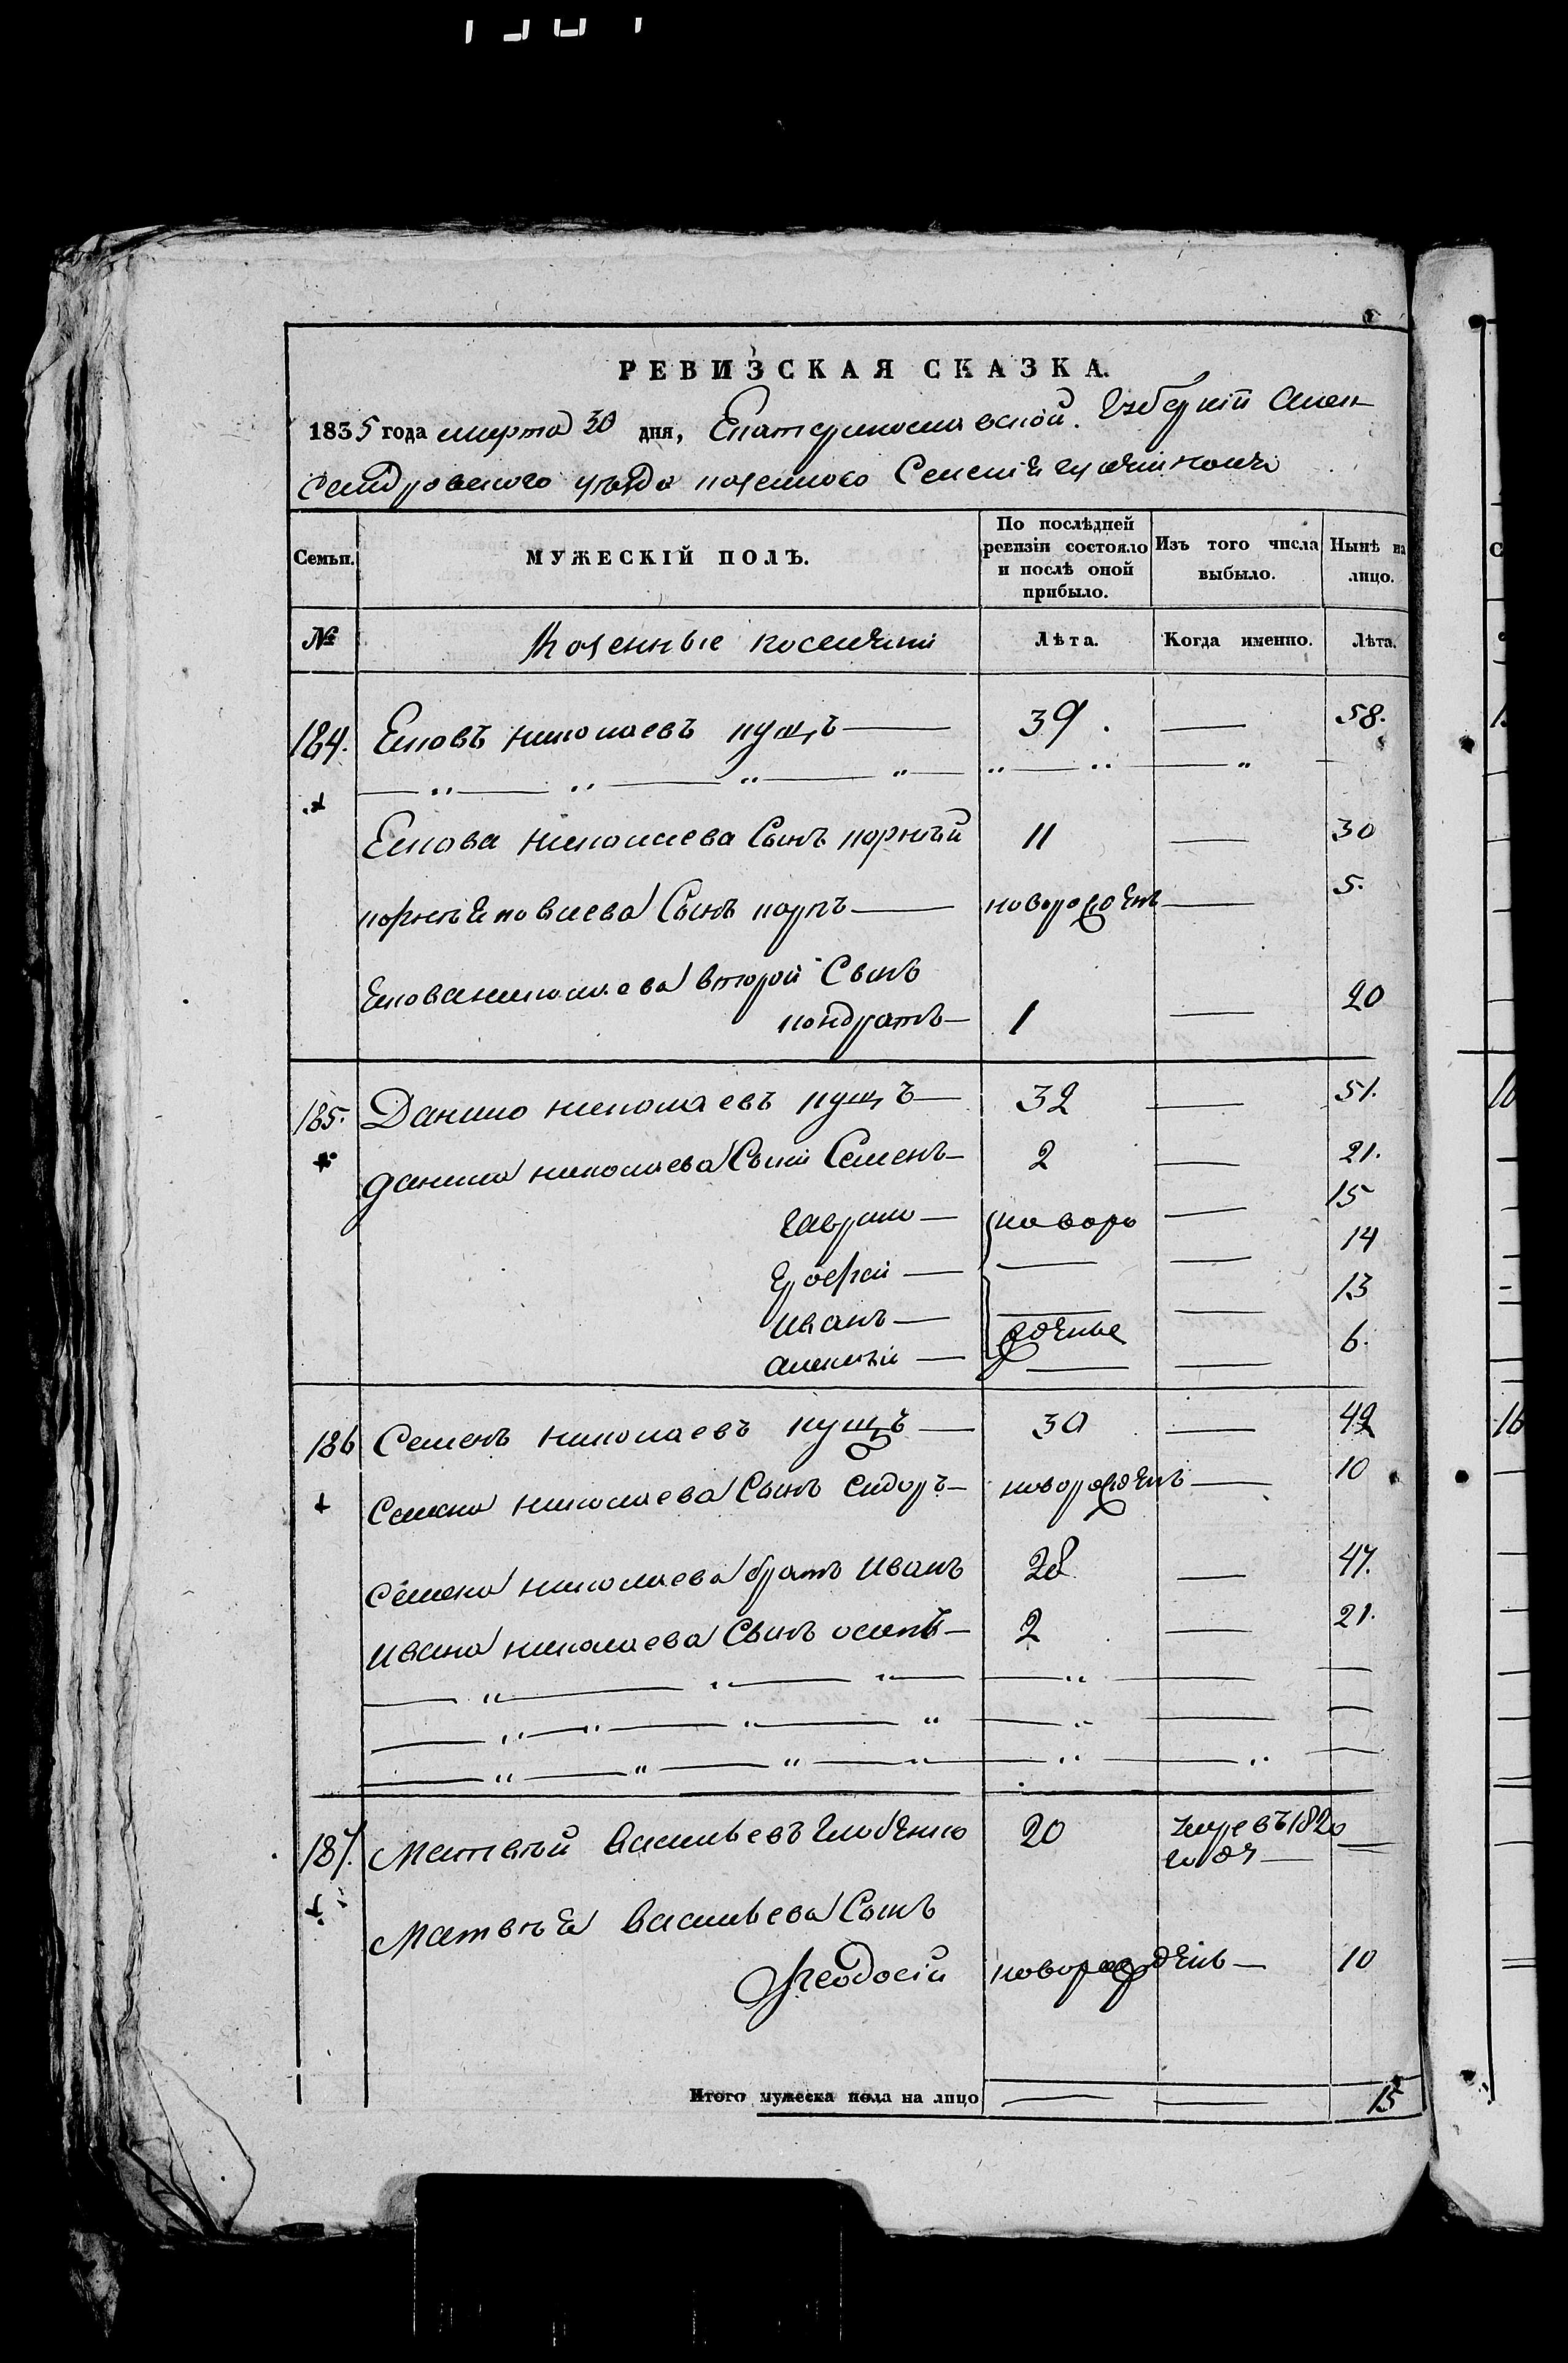 РЕВИЗСКАЯ СКАЗКА.
1835 года марта 30 дня, Екатеринославской Губерніи Алек-
сандровского уезда казенного Селенія
Семьи. МУЖЕСКІЙ ПОЛЪ. По послѣдней ревизіи состояло и послѣ оной прибыло. Изъ того числа выбыло. Нынѣ на лицо.
№ Казенные поселяни Лѣта. Когда именно. Лѣта.
184. Николаевъ Кущъ — 39. — 58.
Николаева Сынъ Корнѣй 11 — 30
Корнѣя Сынъ Карпъ — новорожденъ — 5.
Николаева второй Сынъ
Кондратъ — 1 — 20
185. Данило Николаевъ Кущъ — 32 — 51.
Данила Николаева Сыни Семенъ — 2 — 21.
Гаврило — новоро — 15
Ерофей — — — 14
Иванъ — — — 13
Алексѣй — жденые — 6.
186 Семенъ Николаевъ Кущъ — 30 — 49
Семена Николаева Сынъ Сидоръ — новорожденъ — 10
Семена Николаева братъ Иванъ 28 — 47.
Ивана Николаева Сынъ Осипъ — 2 — 21.
187. Матвѣй Васильевъ 20 умре въ 1820
годѣ —
Матвѣя Васильева Сынъ
Феодосій новорожденъ — 10
Итого мужеска пола на лицо — — 15